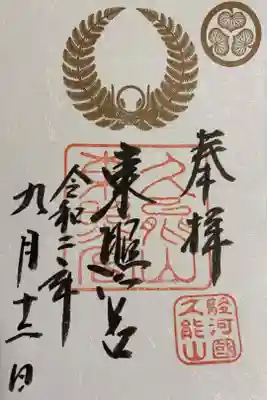 奉拝
東照宮
令和二年
九月十二日
駿河國
久能山